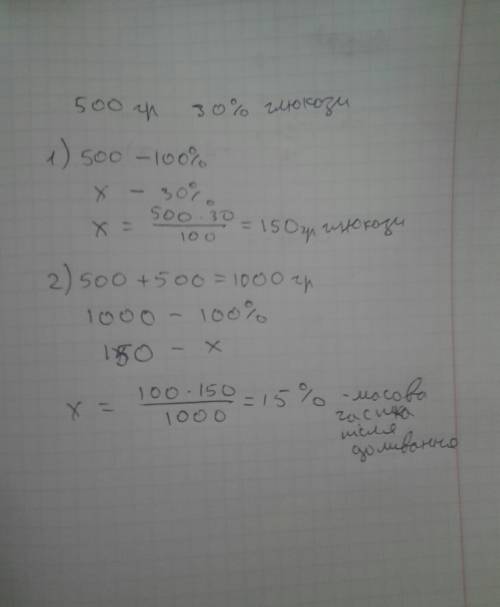 500 гр 30% глюкози
1) 500 – 100%
х – 30%
х = 500 · 30 / 100 = 150 гр глюкози
2) 500 + 500 = 1000 гр
1000 – 100%
150 – х
х = 100 · 150 / 1000 = 15% - масова
частка
після
доливання